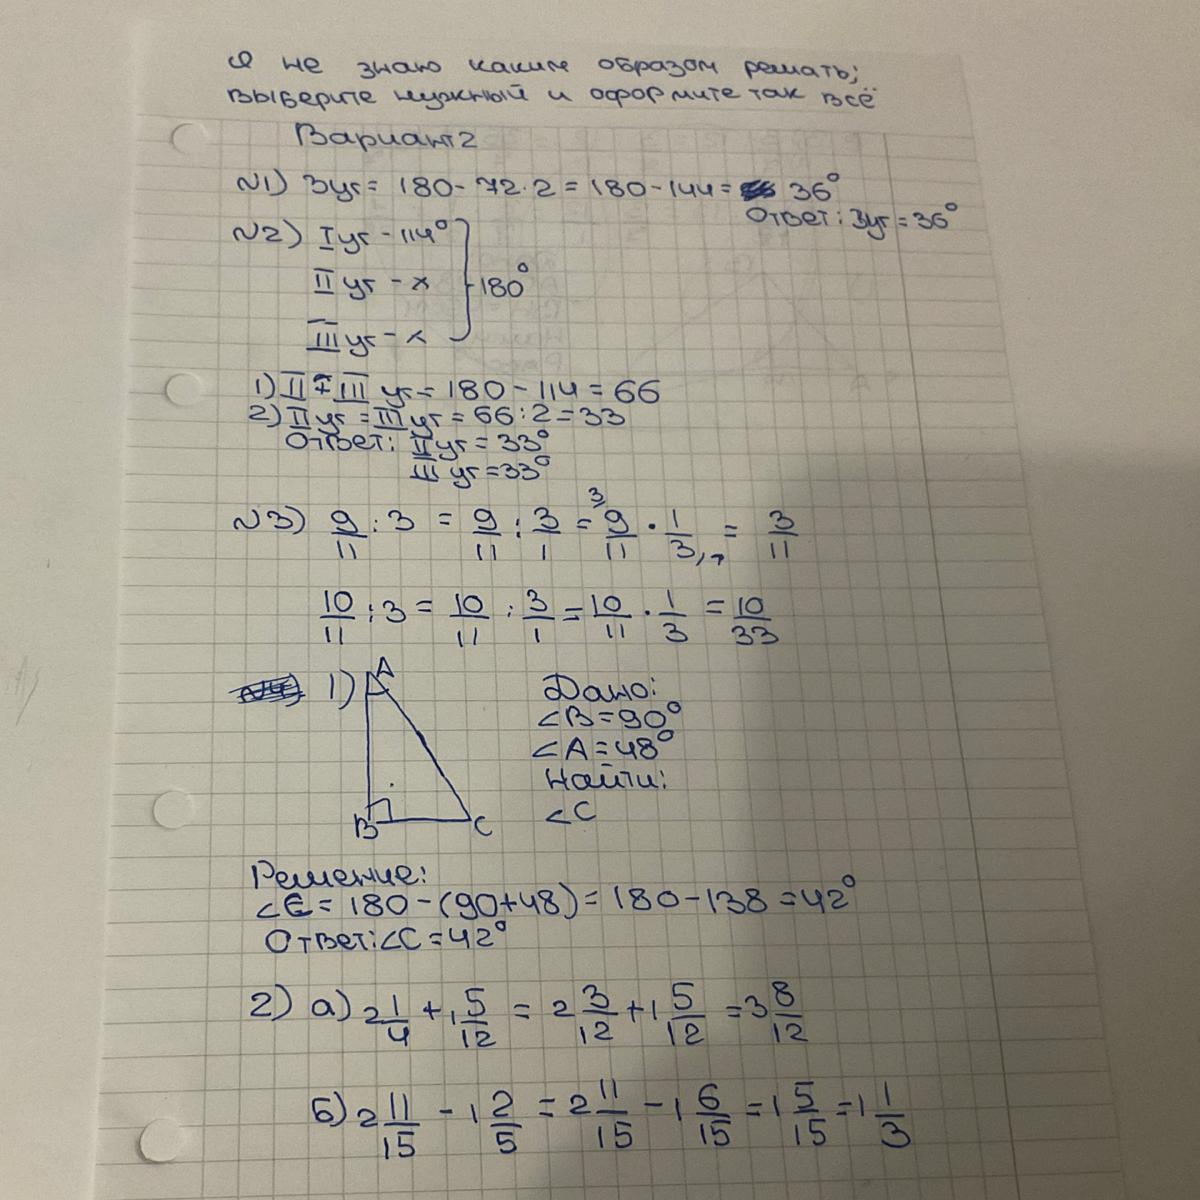 Я не знаю каким образом решать;
выберите нужный и оформите так всё
Вариант 2
№1) 3уг = 180 - 72 · 2 = 180 - 144 = 36°
Ответ: 3уг = 36°
№2) I уг - 114°
II уг - x } 180°
III уг - x
1) II + III уг = 180 - 114 = 66
2) II уг = III уг = 66 : 2 = 33
Ответ: II уг = 33°
III уг = 33°
№3) 9/11 : 3 = 9/11 : 3/1 = 9/11 · 1/3 = 3/11
10/11 : 3 = 10/11 : 3/1 = 10/11 · 1/3 = 10/33
1) A
B C
Дано:
∠B = 90°
∠A = 48°
Найти:
∠C
Решение:
∠C = 180 - (90 + 48) = 180 - 138 = 42°
Ответ: ∠C = 42°
2) а) 2 1/4 + 1 5/12 = 2 3/12 + 1 5/12 = 3 8/12
б) 2 11/15 - 1 2/5 = 2 11/15 - 1 6/15 = 1 5/15 = 1 1/3